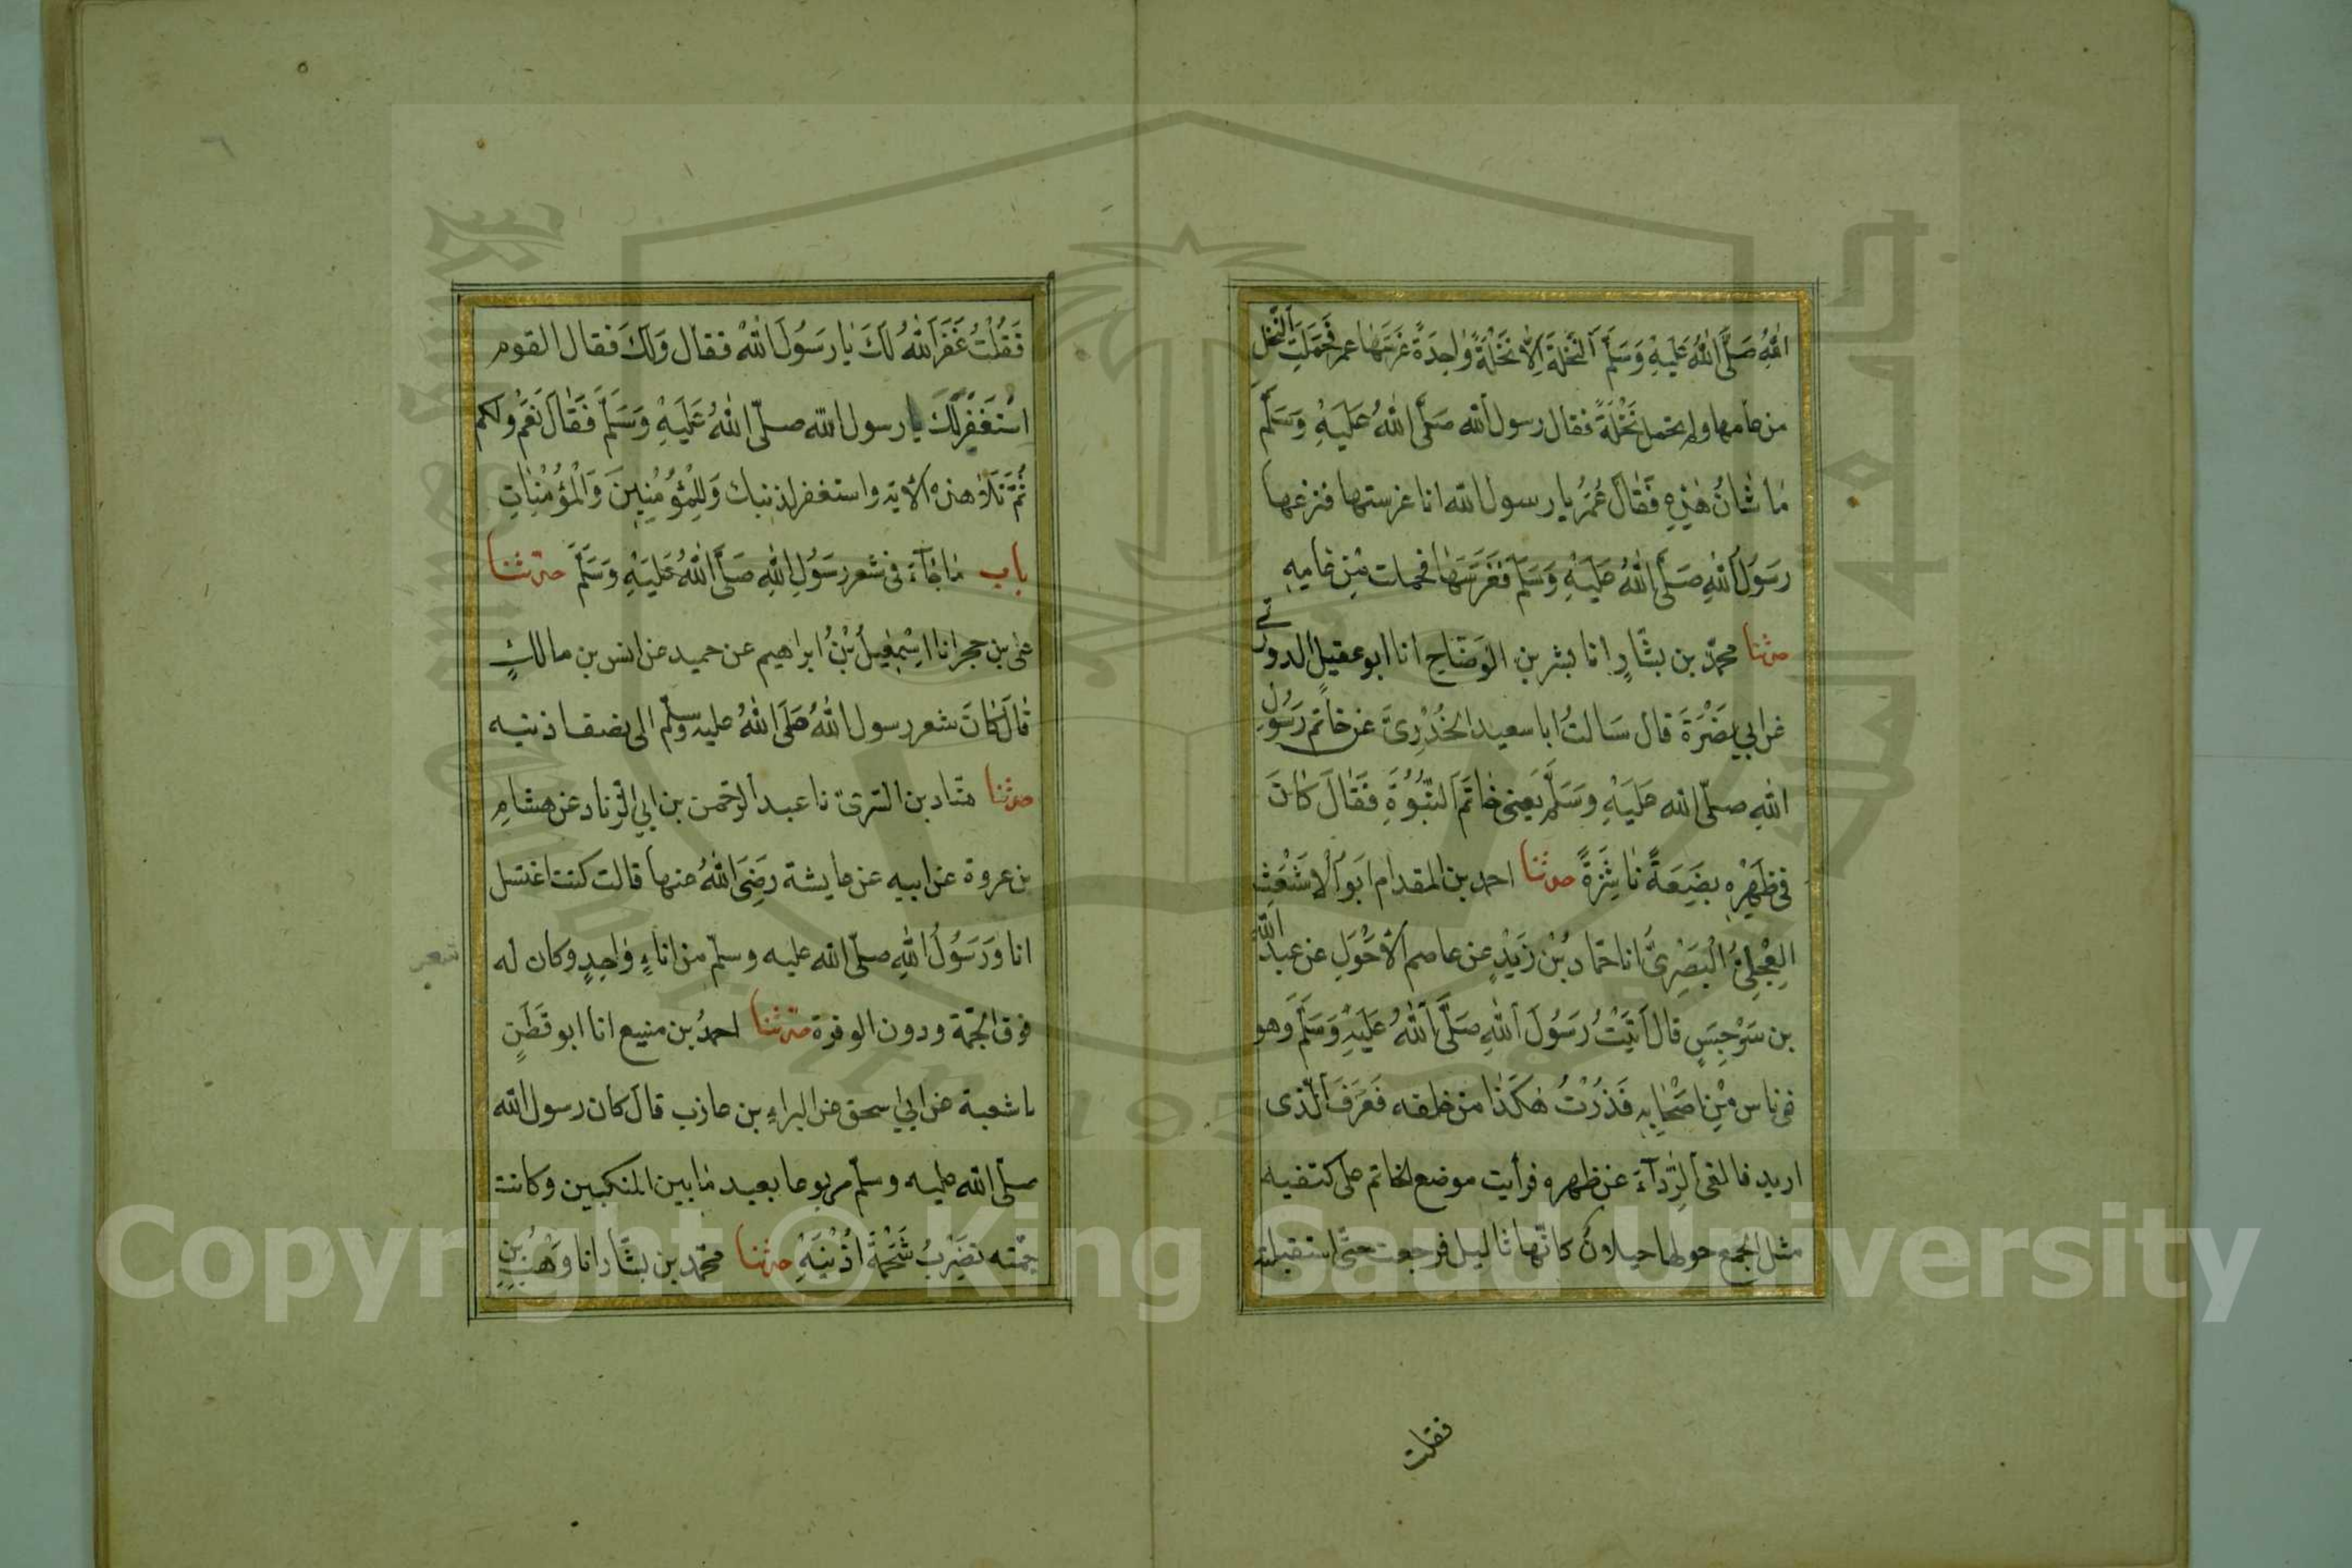 اللهِ صَلَّى اللهُ عَلَيْهِ وَسَلَّمَ اَلنَّخْلَةَ اِلاَّ نَخْلَةً وٰاحِدَةً غَرَسَهٰا عمر فَحَمَلَتِ النَّخْلُ
من عامها ولم تحمل نَخْلَةٌ فقال رسول الله صَلَّى اللهُ عَلَيْهِ وَسَلَّمَ
مٰا شٰانُ هٰذِهِ فَقٰالَ عُمَرُ يا رسول الله انا غرستها فنزعها
رَسُولُ اللهِ صَلَّى اللهُ عَلَيْهِ وَسَلَّمَ فَغَرَسَهٰا فحملت مِنْ عٰامِهِ
حدثنا محمّد بن بشّارٍ انا بشر بن الوَضّاحِ انا ابو عقيلٍ الدورقى
عن ابي نَضْرَةَ قال سَالتُ ابا سعيد الخُدْرِىَّ عن خٰاتَمِ رَسُولِ
اللهِ صلّى الله عَلَيْهِ وَسَلَّمَ يَعنى خٰاتَمَ النُّبُوَّةِ فَقٰالَ كٰانَ
فى ظَهْرِهِ بضَعَةً نٰاشِزَةً حدثنا احمد بن المقدام ابَو اْلاَشْعَثِ
العِجْلِىُّ الْبَصْرِىُّ انا حَمّادُ بْنُ زَيْدٍ عن عاصم الاَحْوَلِ عن عبد الله
بن سَرْجِسٍ قال اَتَيْتُ رَسُولَ اللهِ صَلَّى اللهُ عَلَيْهِ وَسَلَّمَ وَهو
فى ناس مِنْ اَصْحٰابِهِ فَدُرْتُ هٰكَذٰا من خلفه فَعَرَفَ الّذى
اريد فالقى الرِّدآءَ عن ظهره فرأيت موضع الخاتم على كتفيه
مثل الجمع حولها خيلانٌ كانّها ثاليل فرجعت حتّى استقبلته
فقلت
فَقُلْتُ غَفَرَ اللهُ لَكَ يٰا رَسُولَ اللهُ فقال وَلَكَ فقال القوم
اسْتَغْفَرَ لَكَ يا رسول الله صلّى اللهُ عَلَيْهِ وَسَلَّمَ فَقٰالَ نَعَمْ ولكم
ثُمَّ تَلاٰ هذه الاٰية واستغفر لذنبك وَلِلْمُؤْمِنِينَ وَالْمُؤْمِنٰاتِ
باب مٰا جٰآءَ فى شعر رَسُولِ اللهِ صَلَّى اللهُ عَلَيْهِ وَسَلَّمَ حدثنا
على بن حجر انا اِسْمٰعِيلُ بْنُ ابراهيم عن حميد عن انس بن مالكٍ
قٰالَ كٰانَ شعر رسول اللهُ صَلَى اللهُ عليه وسلّم الى نصف اذنيه
حدثنا هنّاد بن السّرىّ نا عبد الرحّمن بن ابي الزّناد عن هشامِ
بن عروة عن ابيه عن عايشة رَضِىَ اللهُ عنها قالت كنت اغتسل
انا وَرَسُولُ اللهِ صلّى الله عليه وسلّم من اناءٍ وٰاحِدٍ وكان له
شعر
فوق الجّمة ودون الوفرة حدثنا احمدُ بن منيع انا ابو قَطَنٍ
نا شعبة عن ابي اسحق عن البراءِ بن عازب قال كان رسول الله
صلّى الله عليه وسلّم مربوعا بعيد مٰا بين المنكبين وكانت
جمّته تضرِبُ شَحْمَةَ اُذُنَيْهِ حدثنا محمّد بن بشّار انا وَهْبُ بن
Copyright © King Saud University
1957